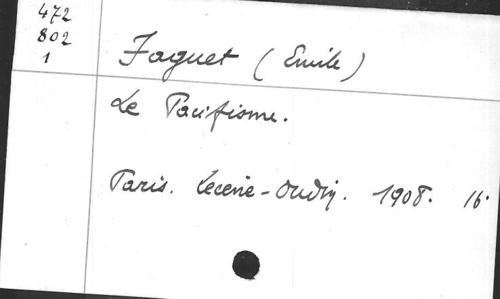 472
802
1
Faguet (Emile)
Le Pacifisme.
Paris. Lecène-Oudin. 1908. 16.